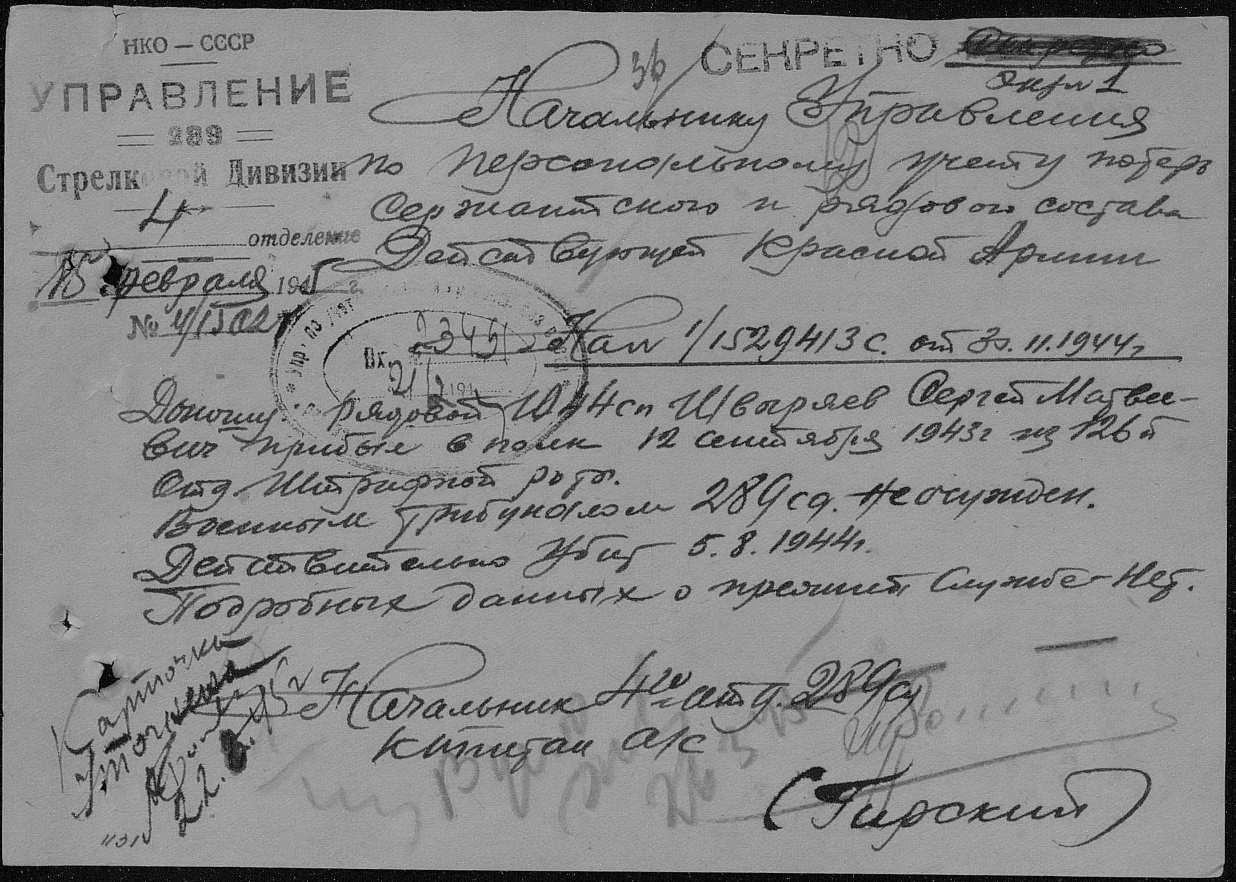 НКО — СССР
УПРАВЛЕНИЕ
289
Стрелковой Дивизии
4 отделение
февраля 1945 г.
№ 4/1502
СЕКРЕТНО
экз № 1
Начальнику Управления
по персональному учету потерь
Сержантского и рядового состава
Действующей Красной Армии
На № 1/1529413с. от 30.11.1944г
Вх. 2345
21/2 194
Доношу: рядовой 1044сп Швыряев Сергей Матвее-
вич прибыл в полк 12 сентября 1943г из 126й
Отд. Штрафной роты.
Военным трибуналом 289сд. не осужден.
Действительно убит 5.8.1944г.
Подробных данных о прошлой службе - Нет.
Начальник 4го отд. 289сд
капитан а/с
(Гирский)
Карточка
уточнена
22.